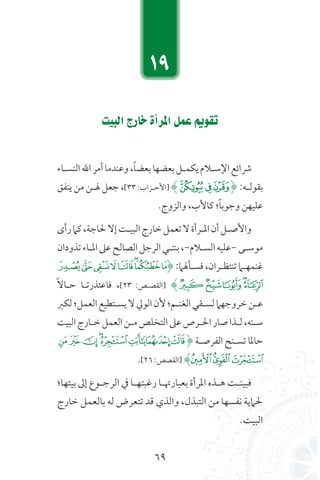 ١٩
تقويم عمل المرأة خارج البيت
شرائع الإسلام يكمل بعضها بعضاً، وعندما أمر الله النساء
بقوله: ﴿ وَقَرْنَ فِي بُيُوتِكُنَّ ﴾ [الأحزاب: ٣٣]، جعل لهن من ينفق
عليهن وجوباً؛ كالأب، والزوج.
والأصل أن المرأة لا تعمل خارج البيت إلا لحاجة، كما رأى
موسى -عليه السلام-، بنتي الرجل الصالح على الماء تذودان
غنمهما تنتظران، فسألهما: ﴿ مَا خَطْبُكُمَا قَالَتَا لَا نَسْقِي حَتَّىٰ يُصْدِرَ
الرِّعَاءُ وَأَبُونَا شَيْخٌ كَبِيرٌ ﴾ [القصص: ٢٣]، فاعتذرتا حالاً
عن خروجهما لسقي الغنم؛ لأن الولي لا يستطيع العمل؛ لكبر
سنه، لذا صار الحرص على التخلص من العمل خارج البيت
حالما تسنح الفرصة ﴿ قَالَتْ إِحْدَاهُمَا يَا أَبَتِ اسْتَأْجِرْهُ إِنَّ خَيْرَ مَنِ
اسْتَأْجَرْتَ الْقَوِيُّ الْأَمِينُ ﴾ [القصص: ٢٦].
فبينت هذه المرأة بعبارتها رغبتها في الرجوع إلى بيتها؛
لحماية نفسها من التبذل، والذي قد تتعرض له بالعمل خارج
البيت.
٦٩